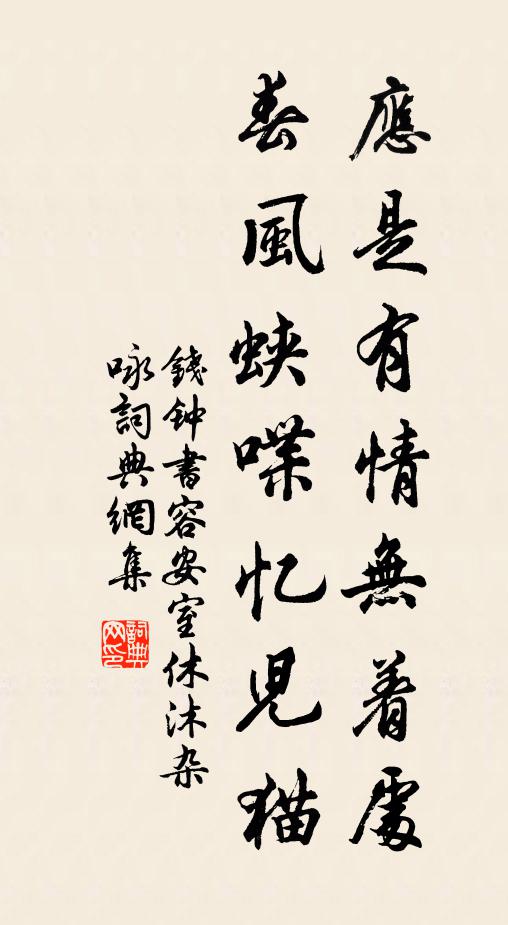 應是有情無着處
春風蛱喋忆児猫
錢钟書容安室休沐杂
咏詞典網集
詞典
网印